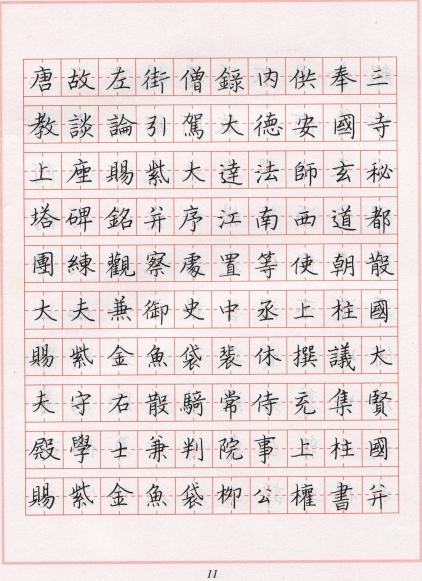 唐故左街僧錄內供奉三
教談論引駕大德安國寺
上座賜紫大達法師玄秘
塔碑銘并序江南西道都
團練觀察處置等使朝散
大夫兼御史中丞上柱國
賜紫金魚袋裴休撰議大
夫守右散騎常侍充集賢
殿學士兼判院事上柱國
賜紫金魚袋柳公權書并
11